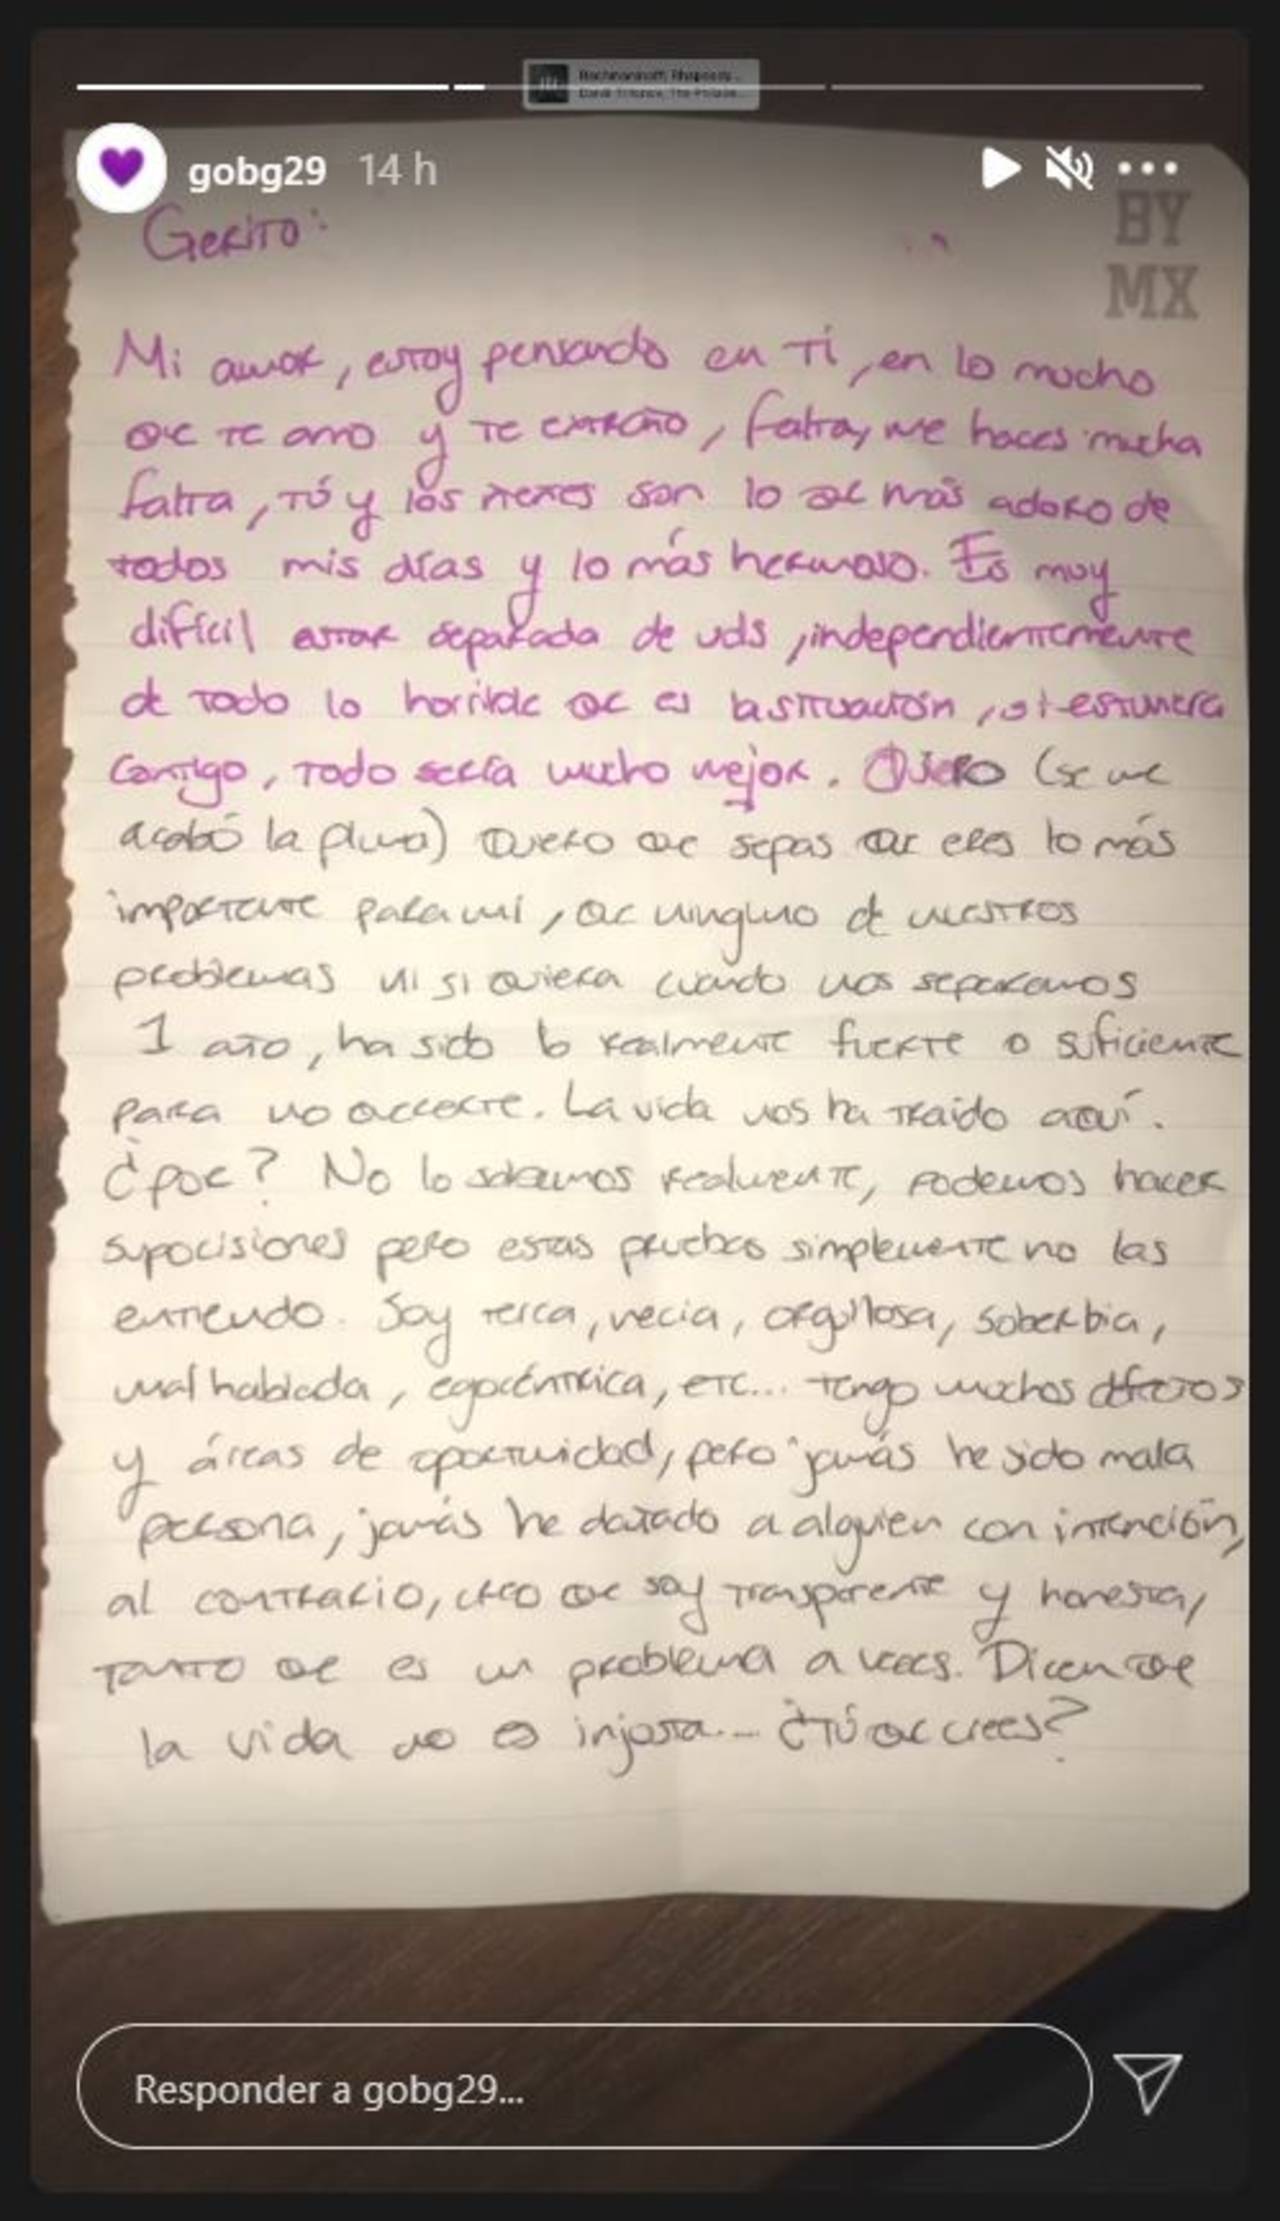 Rachmaninoff: Rhapsody ...
gobg29 14 h
BY
MX
GERITO:
Mi amor, estoy pensando en Ti, en lo mucho
qe te amo y te extraño, falta, me haces mucha
falta, tú y los nenes son lo qe más adoro de
todos mis días y lo más hermoso. Es muy
difícil estar separada de uds, independientemente
de todo lo horrible qe es la situación, si estuviera
contigo, todo sería mucho mejor. Quiero (se me
acabó la pluma) Quiero qe sepas qe eres lo más
importante para mí, qe ninguno de nuestros
problemas ni si quiera cuando nos separamos
1 año, ha sido lo realmente fuerte o suficiente
para no qererte. La vida nos ha traido aquí.
¿por? No lo sabemos realmente, podemos hacer
suposiciones pero estas pruebas simplemente no las
entiendo. Soy terca, necia, orgullosa, soberbia,
mal hablada, egocéntrica, etc... tengo muchos defectos
y áreas de oportunidad, pero jamás he sido mala
persona, jamás he dañado a alguien con intención,
al contrario, creo qe soy transparente y honesta,
tanto qe es un problema a veces. Dicen qe
la vida no es injusta... ¿Tú qe crees?
Responder a gobg29...